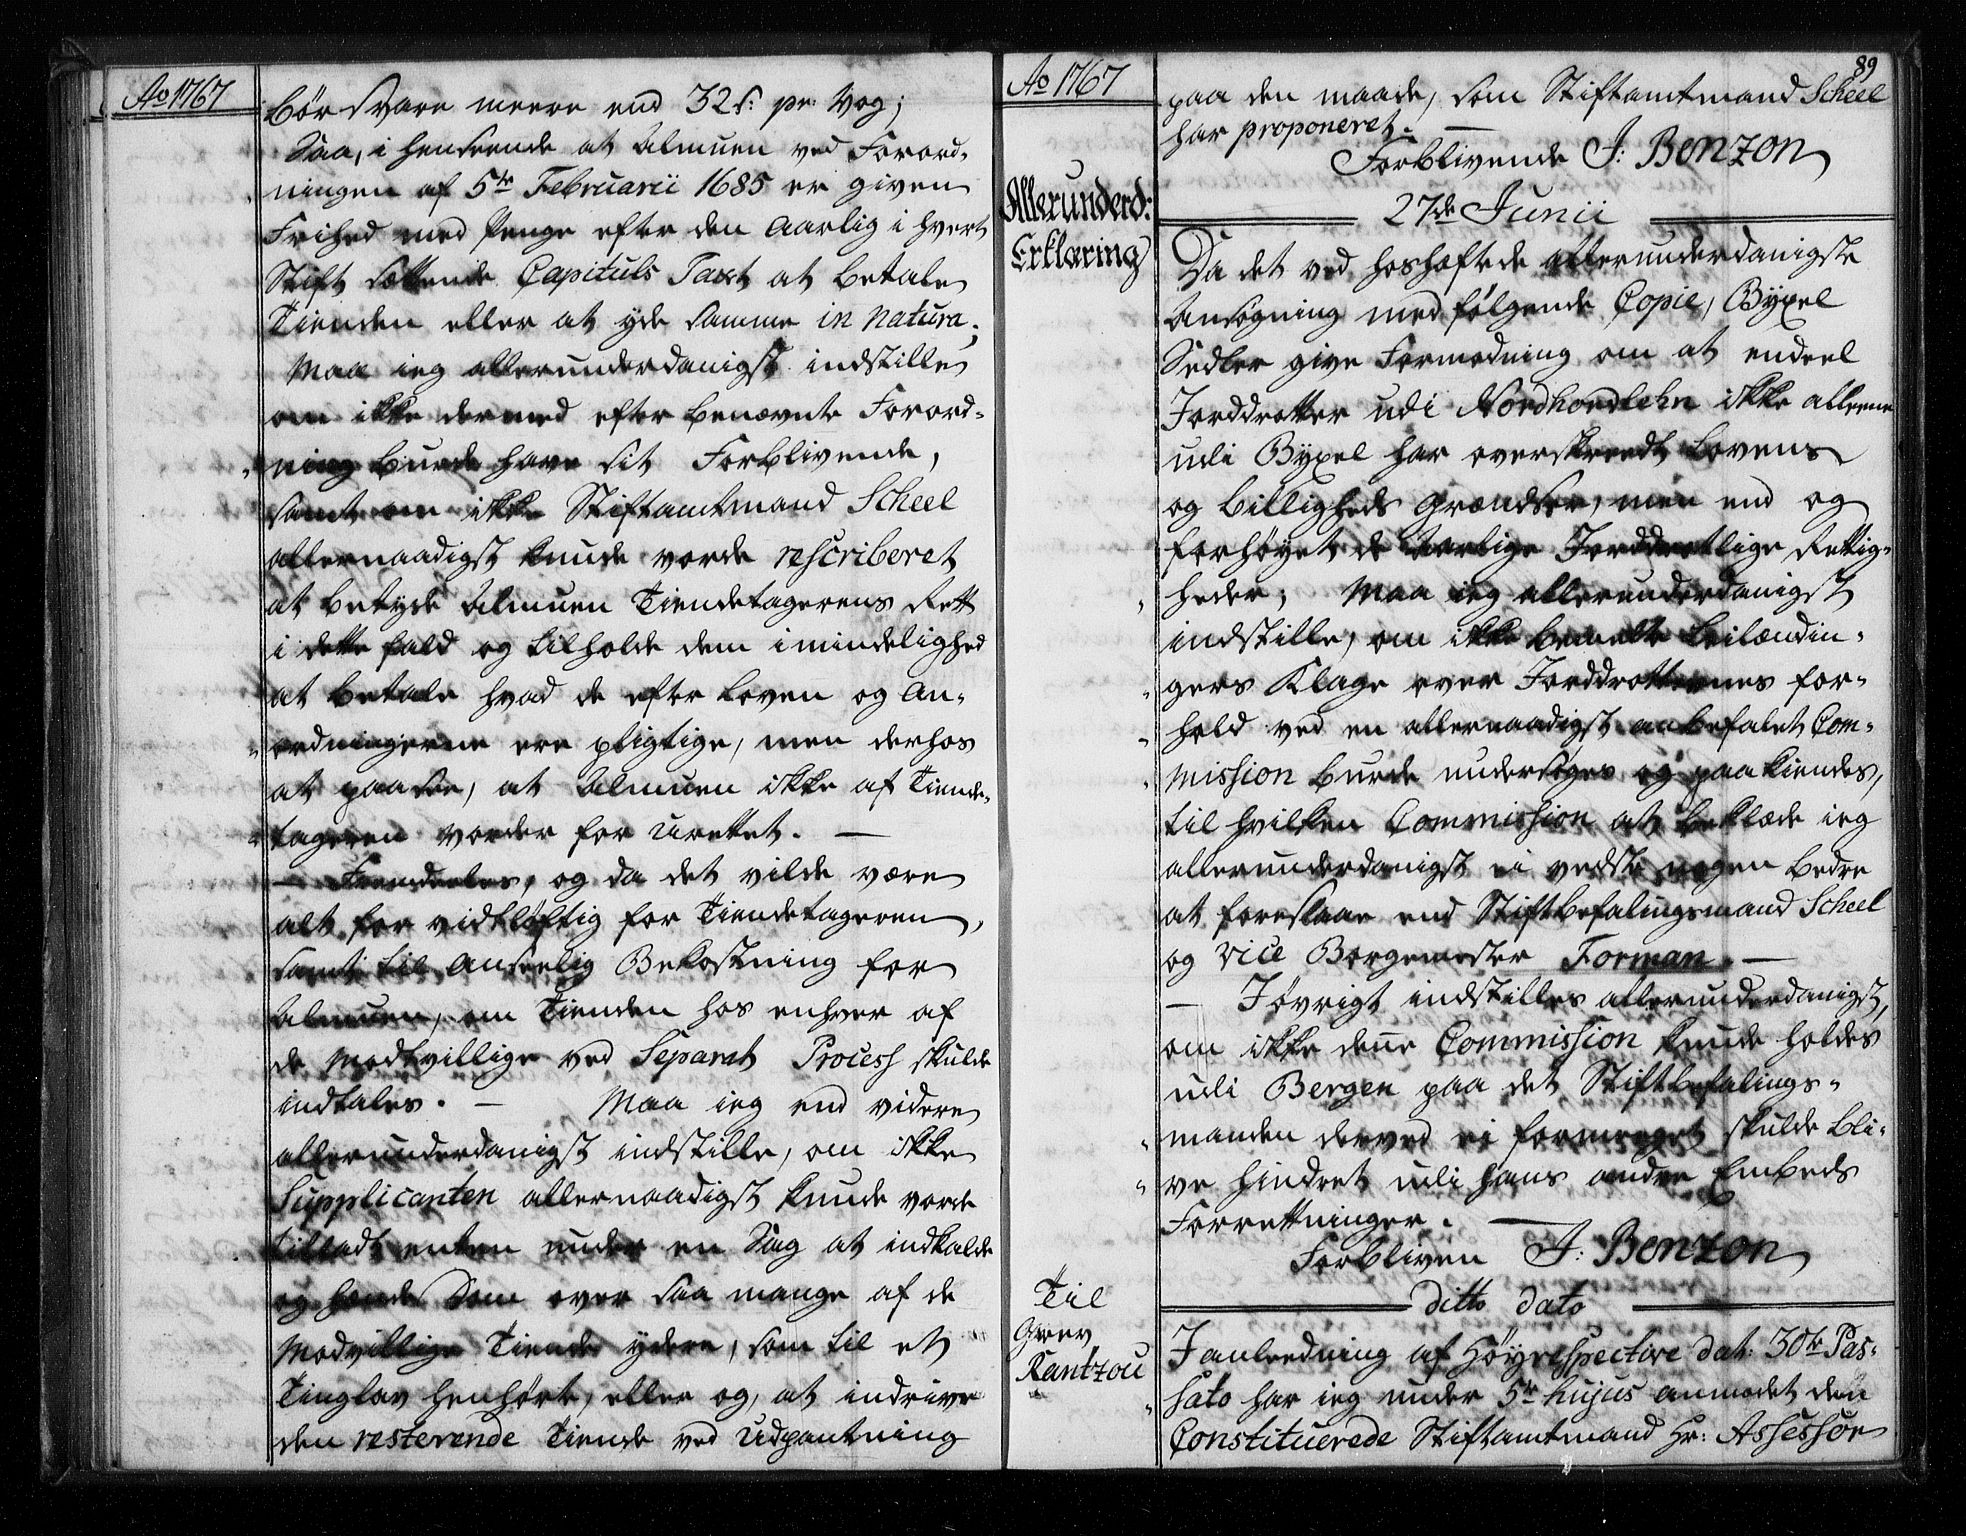 Ao 1767
bör svare meere end 32 s: pr: Vog;
Saa, i henseende at Almuen ved Forord-
ningen af 5te Februarii 1685 er given
Frihed med Penge efter den aarlig i hvert
Stift sættende Capituls Taxt at betale
Tienden eller at yde samme in natura;
Maa ieg allerunderdanigst indstille
om ikke dermed efter benævnte Forord-
ning burde have sit Forblivende,
samt om ikke Stiftamtmand Scheel
allernaadigst kunde vorde rescriberet
at betyde Almuen Tiendetagerens Rett
i dette fald og tilholde dem i mindelighed
at betale hvad de efter Loven og An-
ordningerne ere pligtige, men derhos
at paasee, at Almuen ikke af Tiende-
tageren vorder for urettet. —
— Fremdeeles, og da det vilde være
alt for vidtløftig for Tiendetageren,
samt til anseelig Bekostning for
Almuen, om Tienden hos enhver af
de Modtvillige ved Separat Process skulde
indtales. — Maa ieg end videre
allerunderdanigst indstille, om ikke
Supplicanten allernaadigst kunde vorde
tilladt enten under en Sag at indkalde
og hænde Dom over saa mange af de
Modvillige Tiende ydere, som til et
Tinglav henhørte, eller og, at indrive
den resterende Tiende ved Udpantning
Ao 1767
89
paa den maade, som Stiftamtmand Scheel
har proponeret. —
Forblivende J: Benzon
Allerunderd:
Erklæring
27de Junii
Da det ved hoshæftede allerunderdanigste
Ansøgning med følgende Copie, Bÿxel
Sedler give Formodning om at endeel
Jorddrotter udi Nordhordlehn ikke alleene
udi Bÿxel har overskreedt Lovens
og billigheds Grændser, men end og
forhøyet de Aarlige Jorddrotlige Rettig-
heder; Maa ieg allerunderdanigst
indstille, om ikke bemelte Leilændin-
gers Klage over Jorddrotternes for-
hold ved en allernaadigst anbefalet Com-
mission burde undersøges og paakiendes,
til hvilken Commission at beklæde ieg
allerunderdanigst ei vedste nogen bedre
at foreslaae end Stiftbefalingsmand Scheel
og vice Borgemester Forman. —
— I øvrigt indstilles allerunderdanigst,
om ikke denne Commission kunde holdes
udi Bergen paa det Stiftbefalings-
manden derved ei formeget skulde bli-
ve hindret udi hans andre Embeds
Forrettninger. —
Forbliven J: Benzon
ditto dato
Til
Grev
Rantzou
I anleedning af Høÿrespective dat: 30te Pas-
sato har ieg under 5te hujus anmodet den
Constituerede Stiftamtmand Hr: Assessor